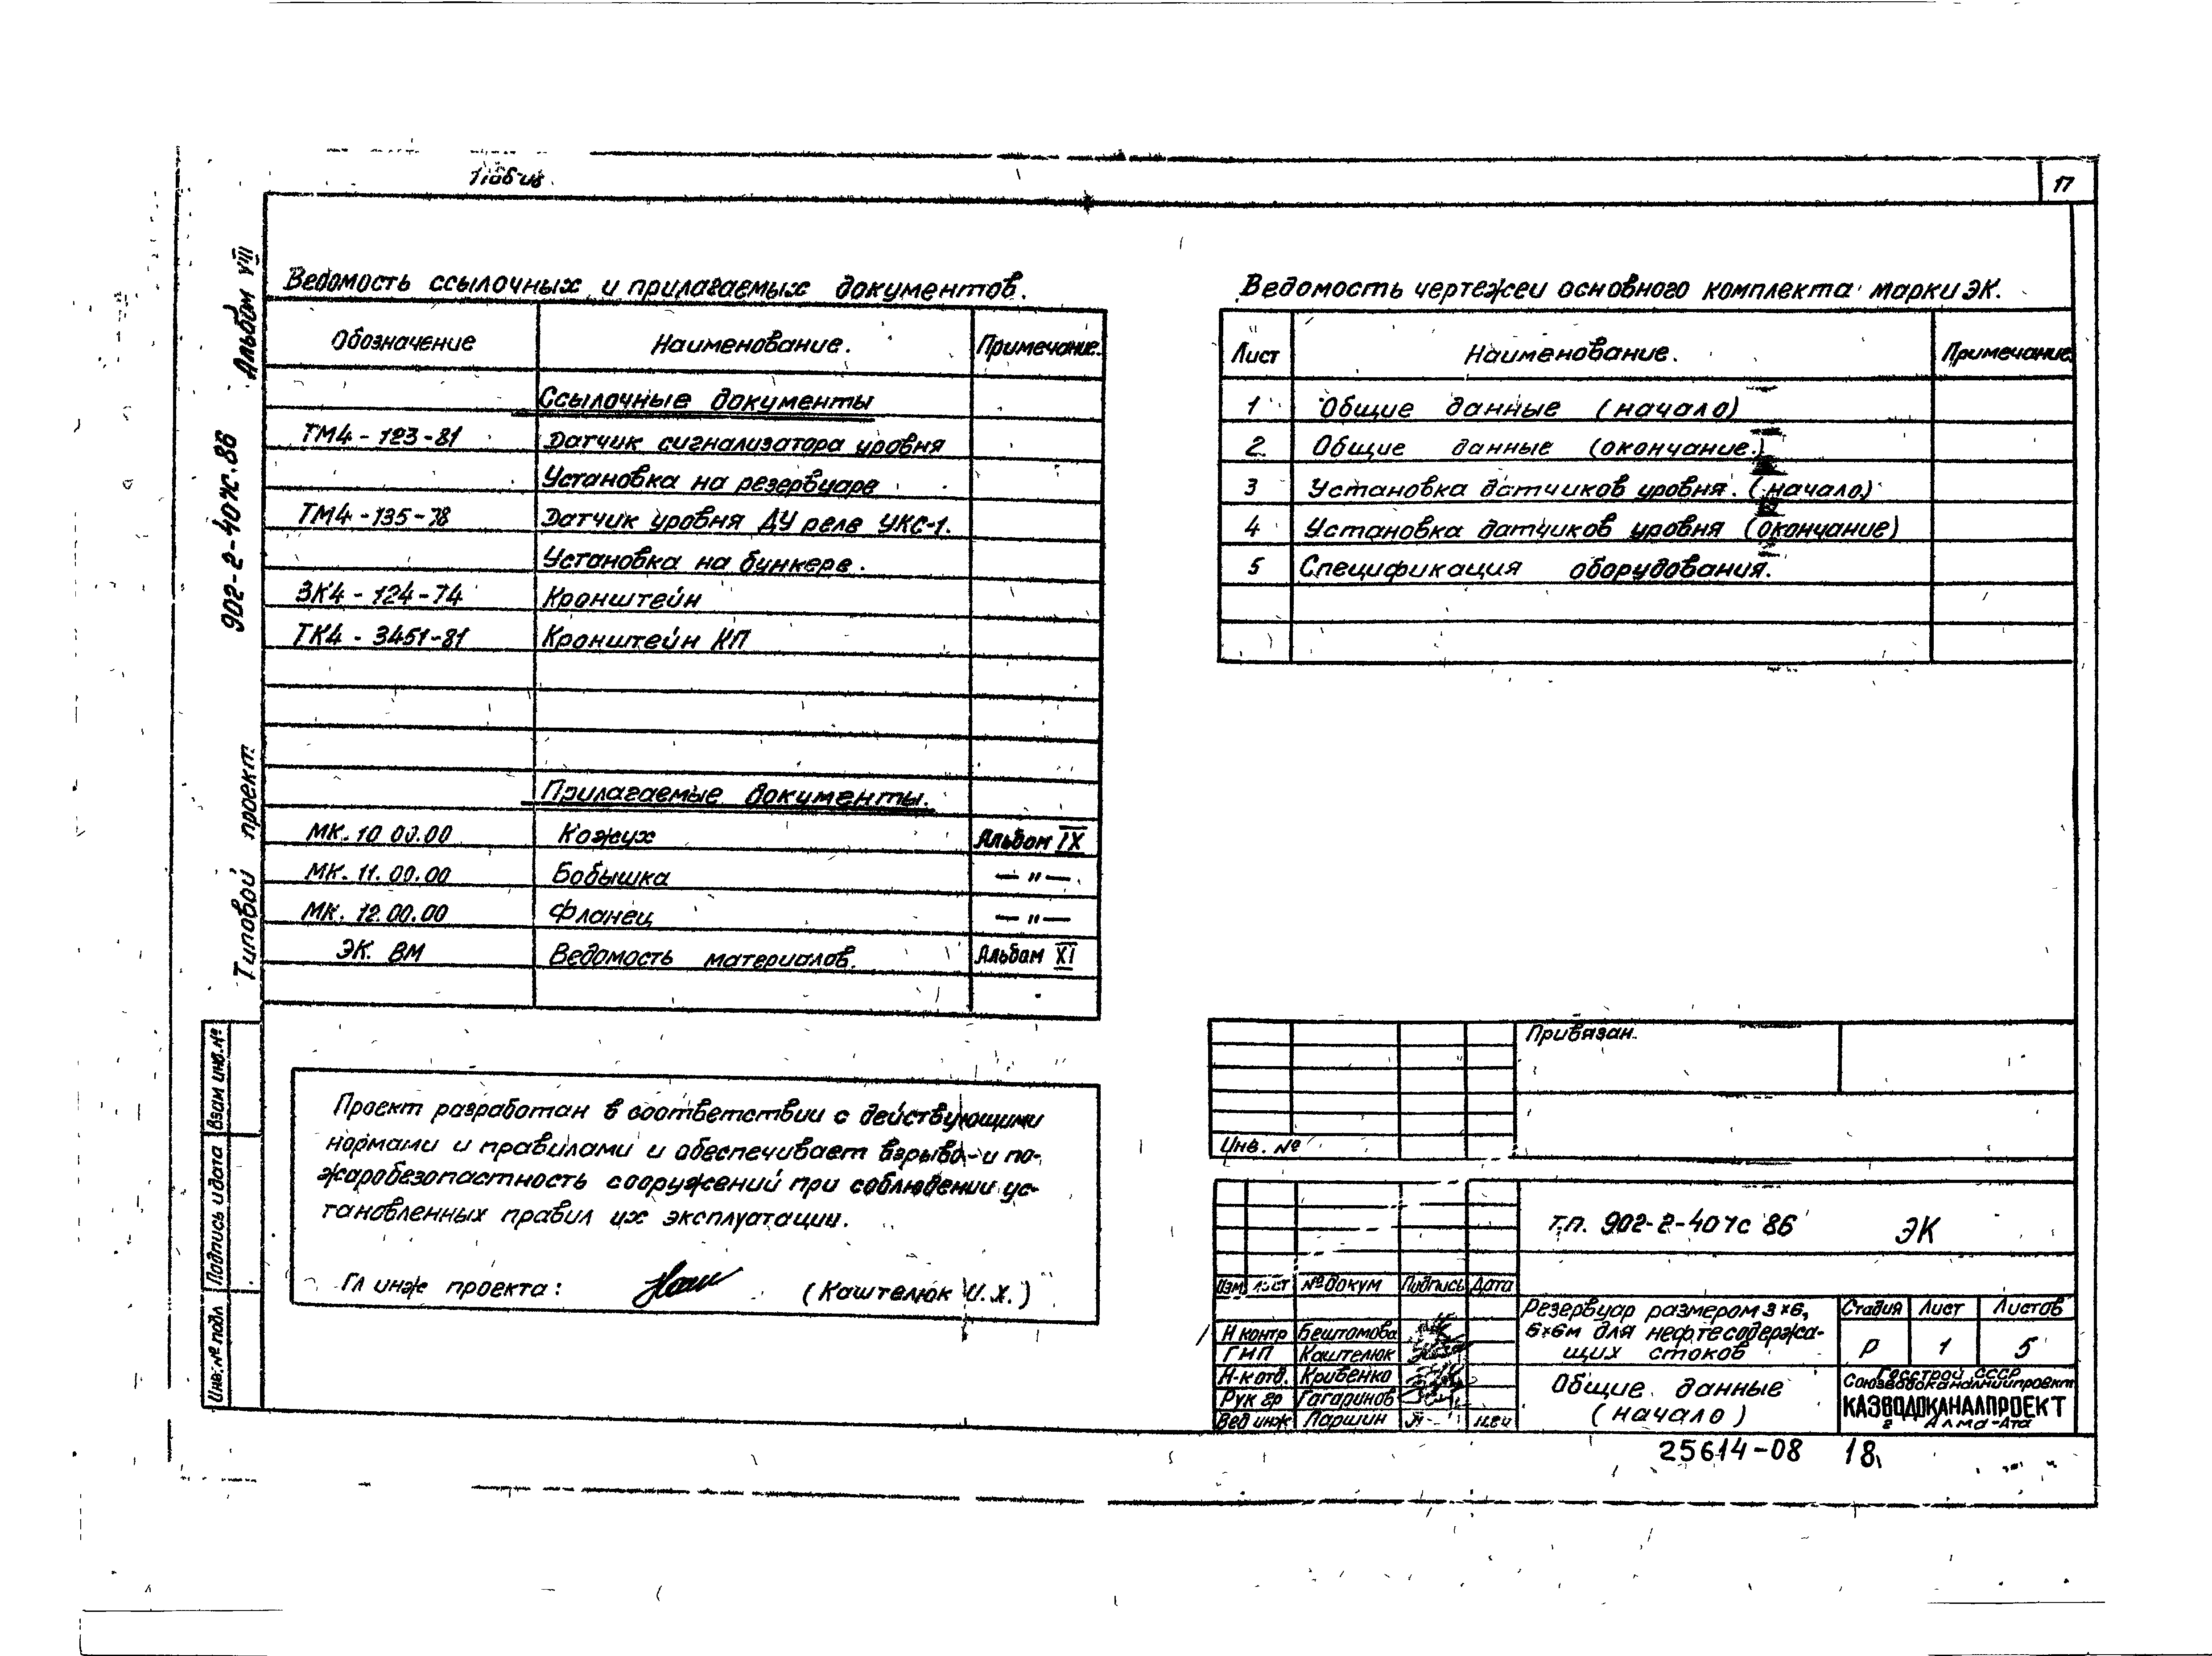 17
Альбом VIII
902-2-407с.86
Типовой проект
Ведомость ссылочных и прилагаемых документов.
Обозначение Наименование. Примечание.
Ссылочные документы
ТМ4-123-81 Датчик сигнализатора уровня
Установка на резервуаре
ТМ4-135-78 Датчик уровня ДУ реле УКС-1.
Установка на бункере.
ЗК4-124-74 Кронштейн
ТК4-3451-81 Кронштейн КП
Прилагаемые документы.
МК.10 00.00 Кожух Альбом IX
МК.11.00.00 Бобышка —"—
МК.12.00.00 Фланец —"—
ЭК. ВМ Ведомость материалов. Альбом XI
Проект разработан в соответствии с действующими
нормами и правилами и обеспечивает взрыво-и по-
жаробезопастность сооружений при соблюдении ус-
тановленных правил их эксплуатации.
Гл инж проекта: (Каштелюк И.Х.)
Ведомость чертежей основного комплекта марки ЭК.
Лист Наименование. Примечание
1 Общие данные (начало)
2 Общие данные (окончание.)
3 Установка датчиков уровня. (начало)
4 Установка датчиков уровня (окончание)
5 Спецификация оборудования.
Привязан.
Инв. №
Т.п. 902-2-407с 86 ЭК
Изм Лист №докум Подпись Дата
Н контр Бештомова
ГИП Каштелюк
Н-к отд. Кривенко
Рук гр Гагаринов
Вед инж Паршин
Резервуар размером 3×6,
6×6м для нефтесодержа-
щих стоков
Стадия Лист Листов
Р 1 5
Общие данные
(начало)
Госстрой СССР
Союзводоканалниипроект
КАЗВОДОКАНАЛПРОЕКТ
г Алма-Ата
Взам инв.№
Подпись и дата
Инв.№ подл
25614-08 18